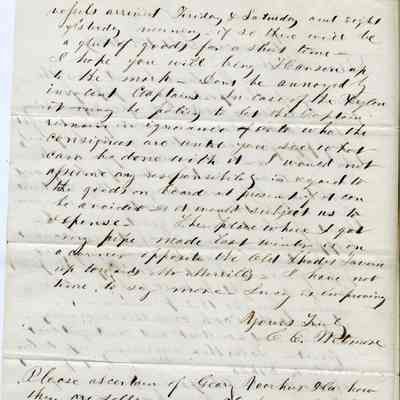 vessels arrived Friday & Saturday and eight
yesterday morning if so there will be
a glut of goods for a short time -
I hope you will bring Hanson up
to the mark - Dont be annoyed by
insolent Captains - In case of the
it may be policy to let the Captain
remain in ignorance of who the
consignees are until you see what
can be done with it I would not
assume any responsibility in regard to
the goods on board at present if it can
be avoided as it would subject us to
expense - The place where I got
my pipe made last winter is on
a corner opposite the Old Tavern
up towards Mr - I have not
time to say more - Lucy is improving
Yours Truly
C. C.
Please ascertain of Geo Voorhies how
they are